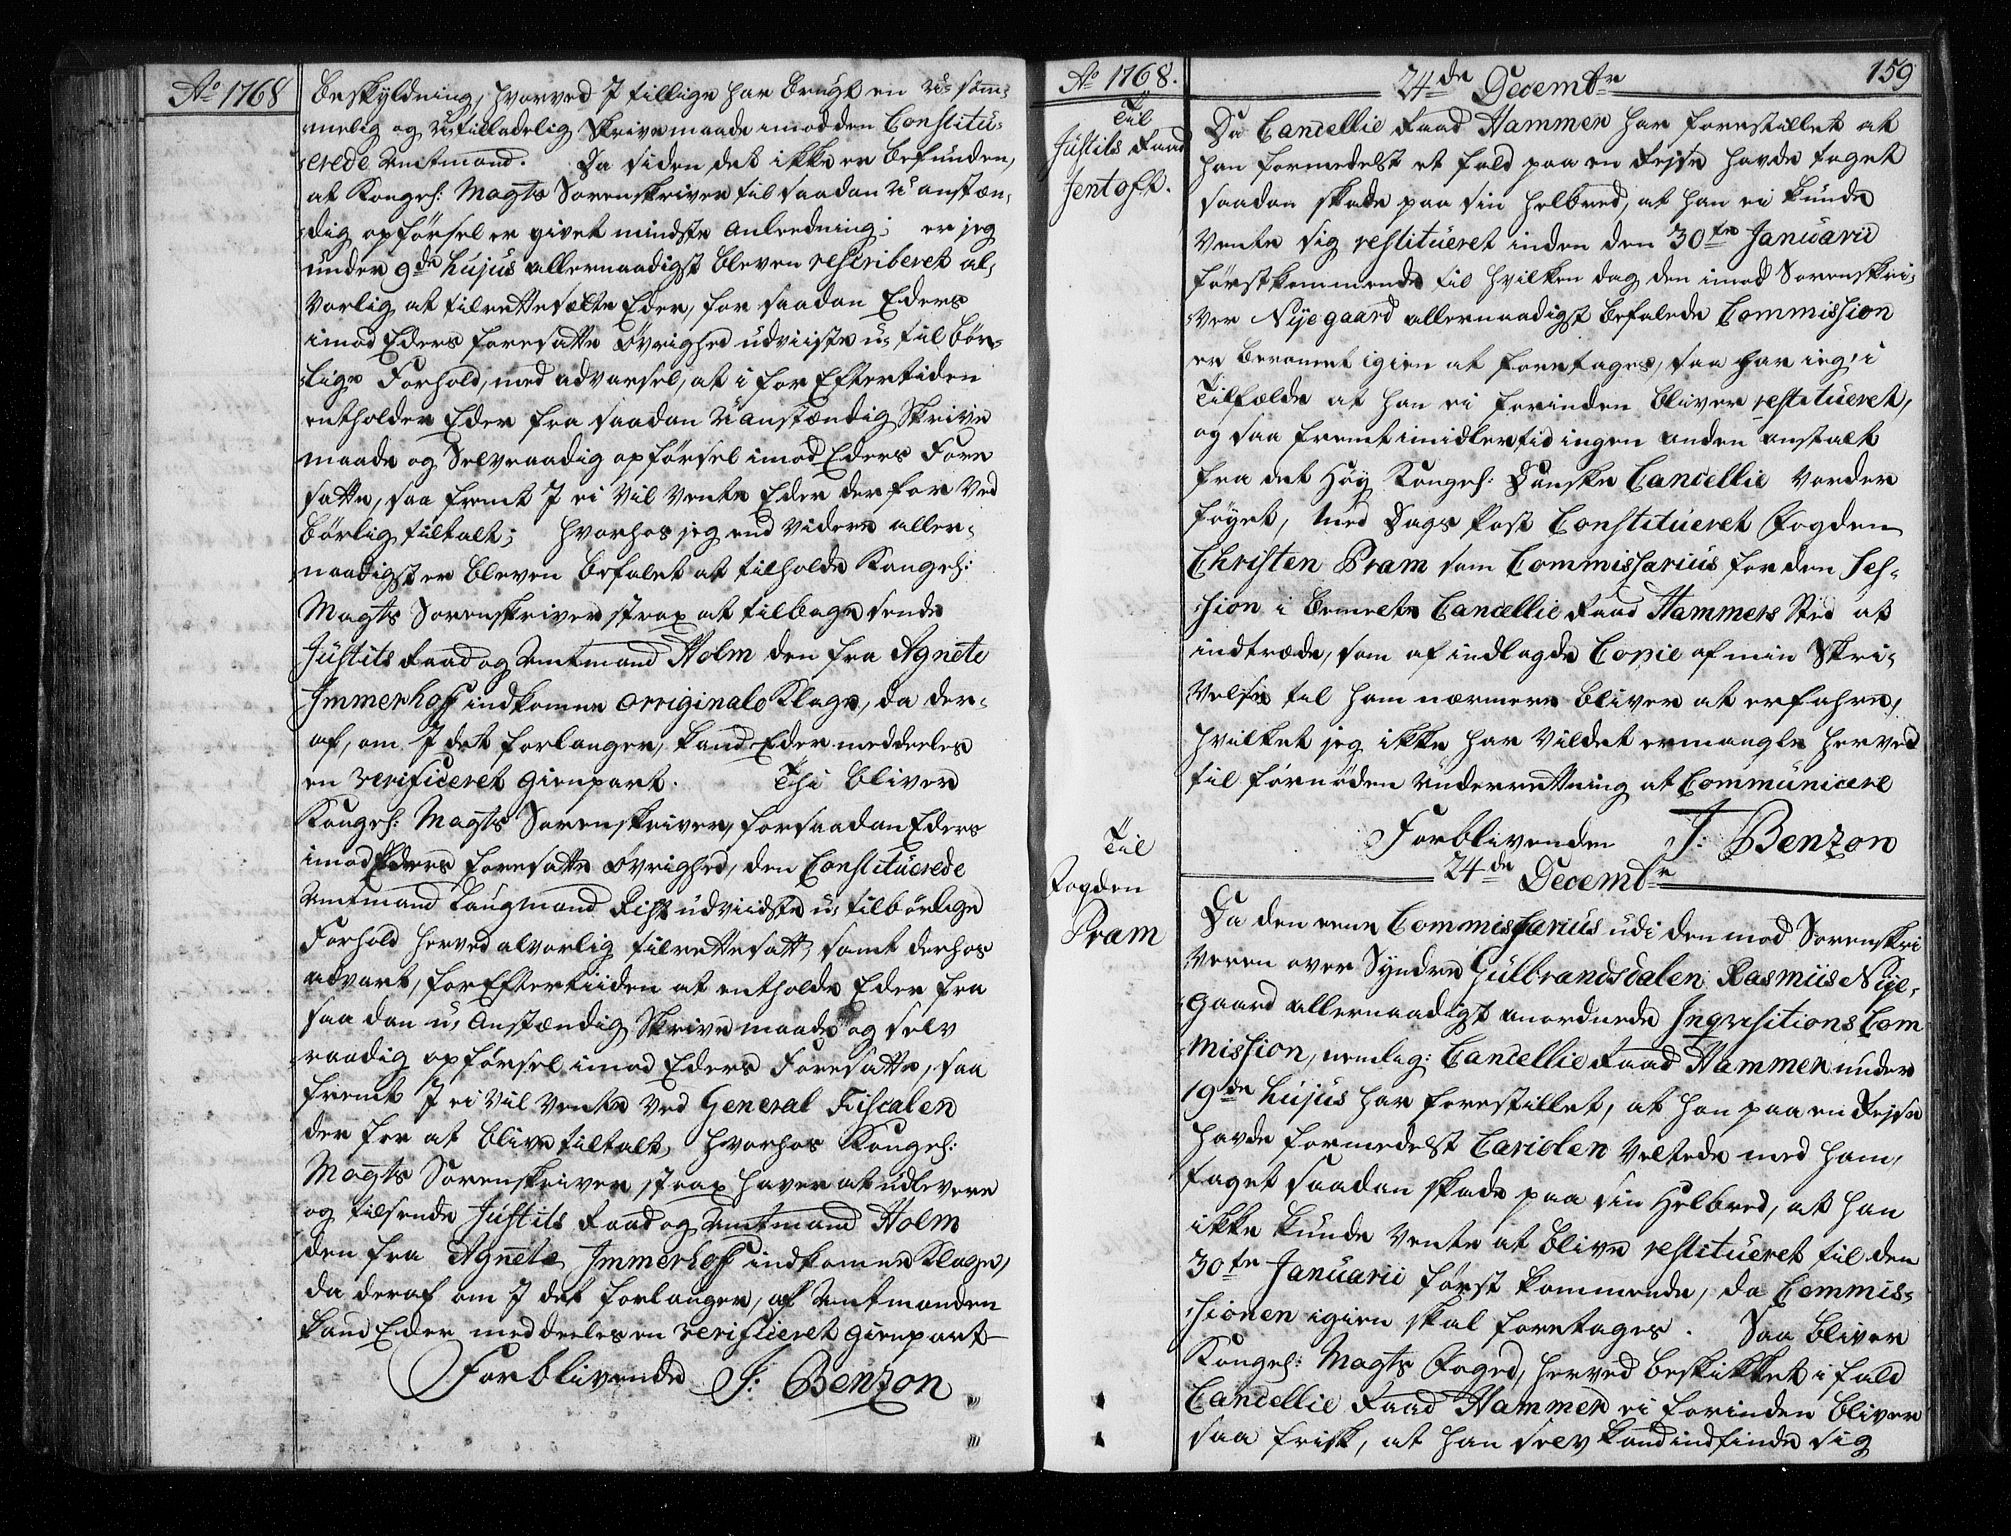 Ao 1768
beskyldning, hvorved I tillige har brugt en u-søm-
melig og utilladelig Skrivemaade imod den Constitu-
erede Amtmand. Da siden det ikke er befunden,
at Kongel: Magts Sorenskriver til saadan u-anstæn-
dig opførsel er givet mindste Anleedning; er jeg
under 9de hujus allernaadigst bleven rescriberet al-
vorlig at tilrettesætte Eder, for saadan Eders
imod Eders foresatte Øvrighed udviiste u-tilbør-
lige Forhold, med advarsel, at i for Eftertiden
entholder Eder fra saadan uanstændig Skrive
maade og Selvraadig opførsel imod Eders Fore
satte, saa fremt I ei vil vente Eder derfor ved
børlig tiltalt; hvorhos jeg end videre aller-
naadigst er bleven befalet at tilholde Kongel:
Magts Sorenskriver strax at tilbage sende
Justits Raad og Amtmand Holm den fra Agnete
Immerhoff indkomne orriginale Klage, da der-
af, om I det forlanger, kand Eder meddeeles
en verificeret gienpart. Thi bliver
Kongel: Magts Sorenskriver, for saadan Eders
imod Eders foresatte Øvrighed, den Constituerede
Amtmand Laugmand Rist udviidste u-tilbørlige
Forhold herved alvorlig tilrettesatt, samt derhos
advart, for Eftertiiden at entholde Eder fra
saadan u-Anstændig Skrivemaade og selv
raadig opførsel imod Eders Foresatte, saa
fremt I ei vil vente ved General Fiscalen
der for at blive tiltalt, hvorhos Kongel:
Magts Sorenskriver strax haver at udlevere
og tilsende Justits Raad og Amtmand Holm
den fra Agnete Immerhoff indkomne Klage,
da deraf om I det forlanger, af Amtmanden
kand Eder meddeeles en verificeret gienpart
Forblivende J: Benzon
Ao 1768.
24de Decembr
159
Til
Justits Raad
Jentoft.
Da Cancellie Raad Hammer har forestillet at
han formedelst et fald paa en Rejse havde taget
saadan skade paa sin helbred, at han ei kunde
vente sig restitueret inden den 30te Januarii
førstkommende til hvilken dag den imod Sorenskri-
ver Nyegaard allernaadigst befalede Commission
er beramet igien at foretages, saa har ieg, i
Tilfælde at han ei forinden bliver restitueret,
og saa fremt imidlertid ingen anden anstalt
fra det Høy Kongel: Danske Cancellie vorder
føyet, med Dags Post Constitueret Fogden
Christen Pram som Commissarius for den Ses-
sion i bemelte Cancellie Raad Hammers Sted at
indtræde, som af indlagde Copie af min Skri-
velse til ham nærmere bliver at erfahre,
hvilket jeg ikke har vildet ermangle herved
til fornøden underrettning at Communicere
Forblivende J: Benzon
24de Decembr
Til
Fogden
Pram
Da den eene Commissarius udi den mod Sorenskri
veren over Syndre Gulbrandsdalen Rasmus Nye-
gaard allernaadigst anordnede Inqvisitions Com
mission, nemlig: Cancellie Raad Hammer under
19de hujus har forestillet, at han paa en Rejse
havde formedelst Cariolen veltede med ham,
taget saadan skade paa sin Helbred, at han
ikke kunde vente at blive restitueret til den
30te Januarii først kommende, da Commis-
sionen igien skal foretages. Saa bliver
Kongel: Magts Foged, herved beskikket i fald
Cancellie Raad Hammer ei forinden bliver
saa frisk, at han selv kand indfinde sig